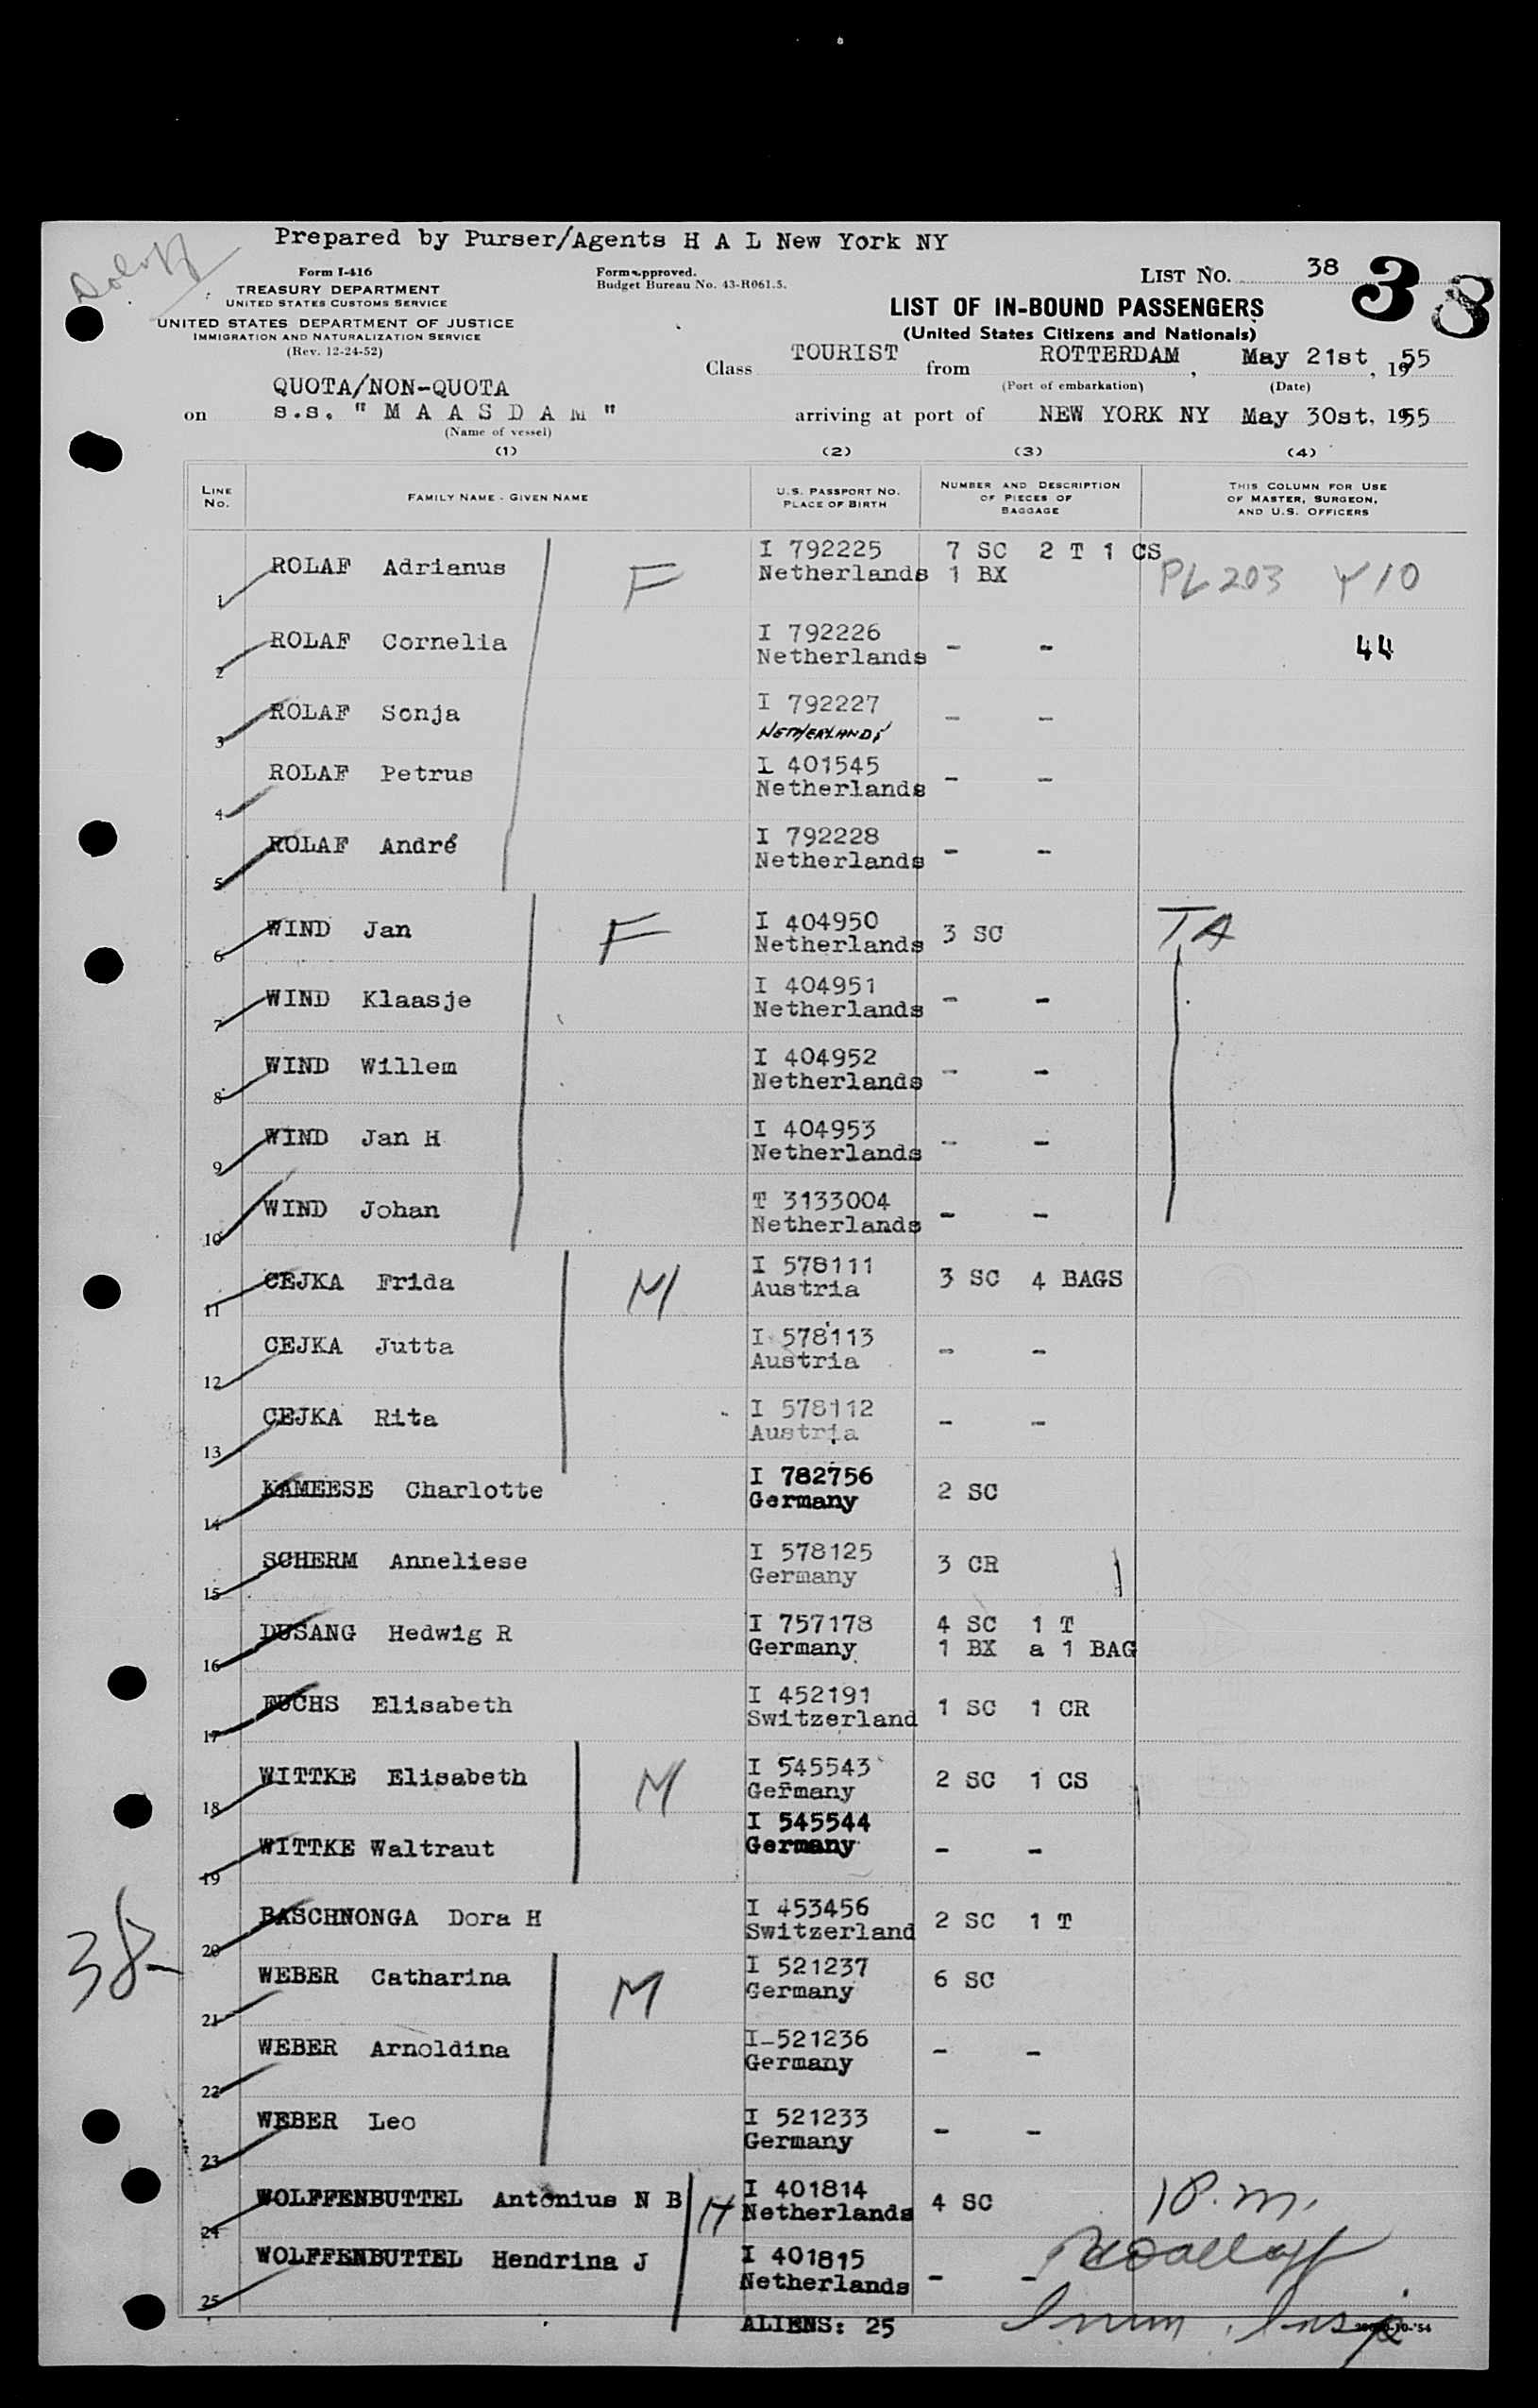 Prepared by Purser/Agents H A L New York NY
Form I-416
TREASURY DEPARTMENT
UNITED STATES CUSTOMS SERVICE
UNITED STATES DEPARTMENT OF JUSTICE
IMMIGRATION AND NATURALIZATION SERVICE
(Rev. 12-24-52)
Form approved.
Budget Bureau No. 43-R061.5.
LIST NO. 38
38
LIST OF IN-BOUND PASSENGERS
(United States Citizens and Nationals)
Class TOURIST from ROTTERDAM, May 21st, 1955
(Port of embarkation) (Date)
QUOTA/NON-QUOTA
on s.s. "M A A S D A M" arriving at port of NEW YORK NY May 30st, 1955
(Name of vessel)
(1) (2) (3) (4)
LINE NO.
FAMILY NAME - GIVEN NAME
U.S. PASSPORT NO.
PLACE OF BIRTH
NUMBER AND DESCRIPTION
OF PIECES OF
BAGGAGE
THIS COLUMN FOR USE
OF MASTER, SURGEON,
AND U.S. OFFICERS
1 ROLAF Adrianus F I 792225 7 SC 2 T 1 CS
Netherlands 1 BX PL203 Y10
2 ROLAF Cornelia I 792226 - - 44
Netherlands
3 ROLAF Sonja I 792227 - -
NETHERLANDS
4 ROLAF Petrus I 401545 - -
Netherlands
5 ROLAF André I 792228 - -
Netherlands
6 WIND Jan F I 404950 3 SC TA
Netherlands
7 WIND Klaasje I 404951 - -
Netherlands
8 WIND Willem I 404952 - -
Netherlands
9 WIND Jan H I 404953 - -
Netherlands
10 WIND Johan T 3133004 - -
Netherlands
11 CEJKA Frida M I 578111 3 SC 4 BAGS
Austria
12 CEJKA Jutta I 578113 - -
Austria
13 CEJKA Rita I 578112 - -
Austria
14 KAMEESE Charlotte I 782756 2 SC
Germany
15 SCHERM Anneliese I 578125 3 CR
Germany
16 DUSANG Hedwig R I 757178 4 SC 1 T
Germany 1 BX a 1 BAG
17 FUCHS Elisabeth I 452191 1 SC 1 CR
Switzerland
18 WITTKE Elisabeth M I 545543 2 SC 1 CS
Germany
19 WITTKE Waltraut I 545544 - -
Germany
20 BASCHNONGA Dora H I 453456 2 SC 1 T
Switzerland
38-
21 WEBER Catharina M I 521237 6 SC
Germany
22 WEBER Arnoldina I-521236 - -
Germany
23 WEBER Leo I 521233 - -
Germany
24 WOLFFENBUTTEL Antonius N B H I 401814 4 SC
Netherlands
25 WOLFFENBUTTEL Hendrina J I 401815 - -
Netherlands
ALIENS: 25
Imm. Insp